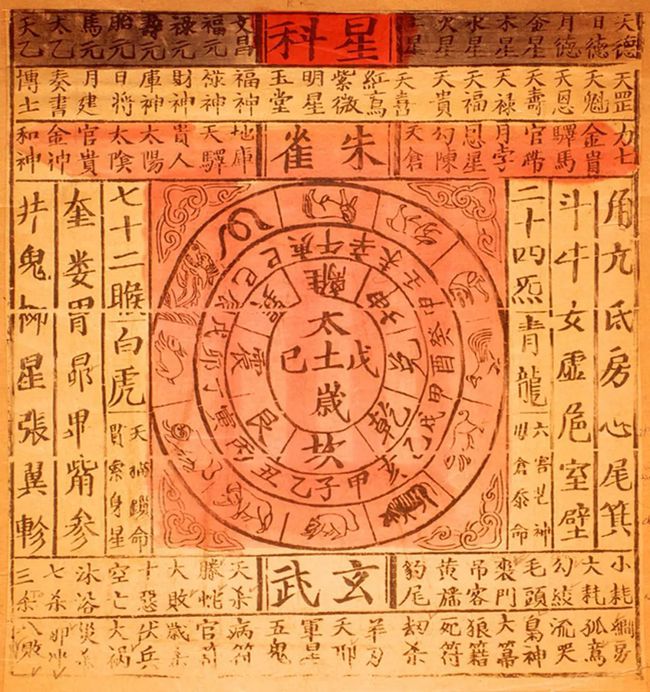 天德
日德
月德
金星
木星
水星
火星
土星
星科
文昌
福元
祿元
壽元
胎元
馬元
太乙
天乙
天罡
天魁
天恩
天壽
天祿
天福
天貴
天喜
紅鸞
紫微
明星
玉堂
福神
祿神
財神
庫神
日將
月建
奏書
博士
力士
金貴
驛馬
官帶
月孛
恩星
勾陳
天倉
朱雀
地庫
天驛
貴人
太陽
太陰
官貴
金神
和神
角亢氐房心尾箕
斗牛女虛危室壁
二十四炁青龍
六害芒神
太土歲
戊
己
離坤兌乾坎艮震巽
午辛未壬申癸酉甲戌乙亥甲子乙丑丙寅丁卯戊辰己巳庚
七十二睺白虎
奎婁胃昴畢觜参
井鬼柳星張翼軫
小耗
大耗
勾絞
毛頭
喪門
吊客
黃旛
豹尾
玄武
天杀
螣蛇
大敗
十惡
空亡
沐浴
七杀
三杀
孤鸞
流哭
梟神
狼籍
死符
劫杀
羊刃
軍星
五鬼
病符
官符
歲杀
伏兵
大禍
災杀
八敗